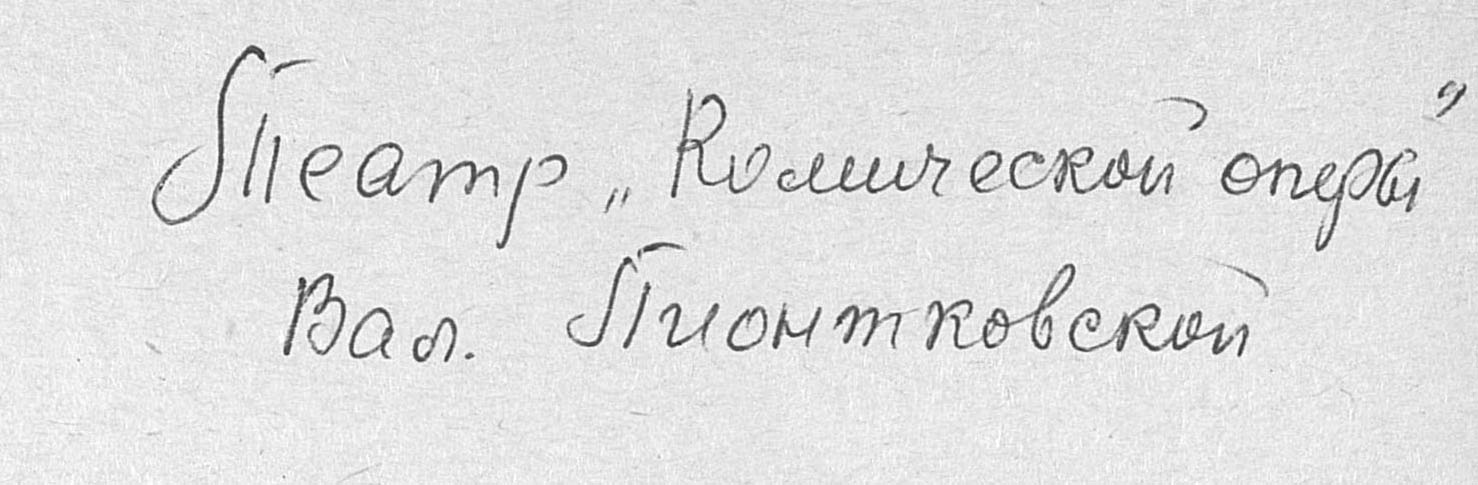 Театр „Комической оперы"
Вал. Пионтковской